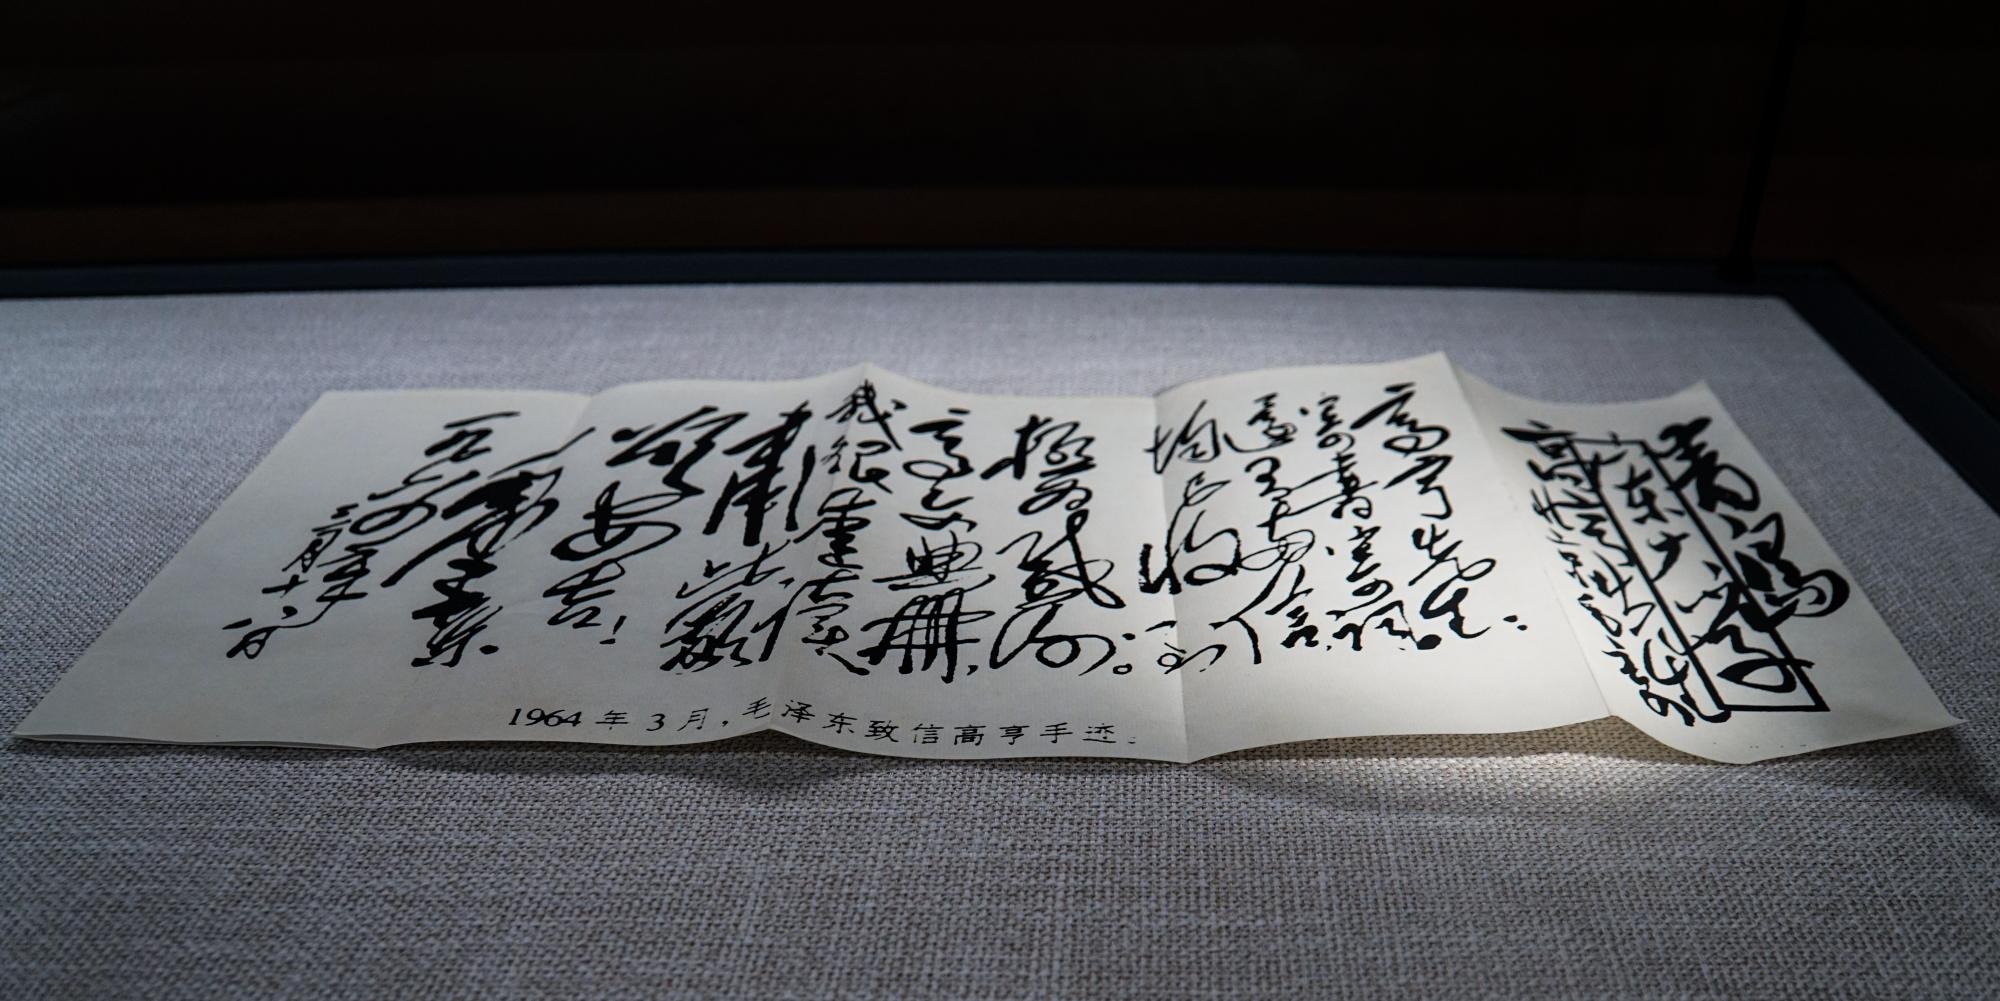 青岛
山东大学
高亨先生：
寄書寄词，
还有两信，
均已收到，
极为感谢。
高文典册，
我很爱读。
肃此。敬
颂安吉！
毛泽东
一九六四年
三月十八日
1964 年 3 月，毛泽东致信高亨手迹。